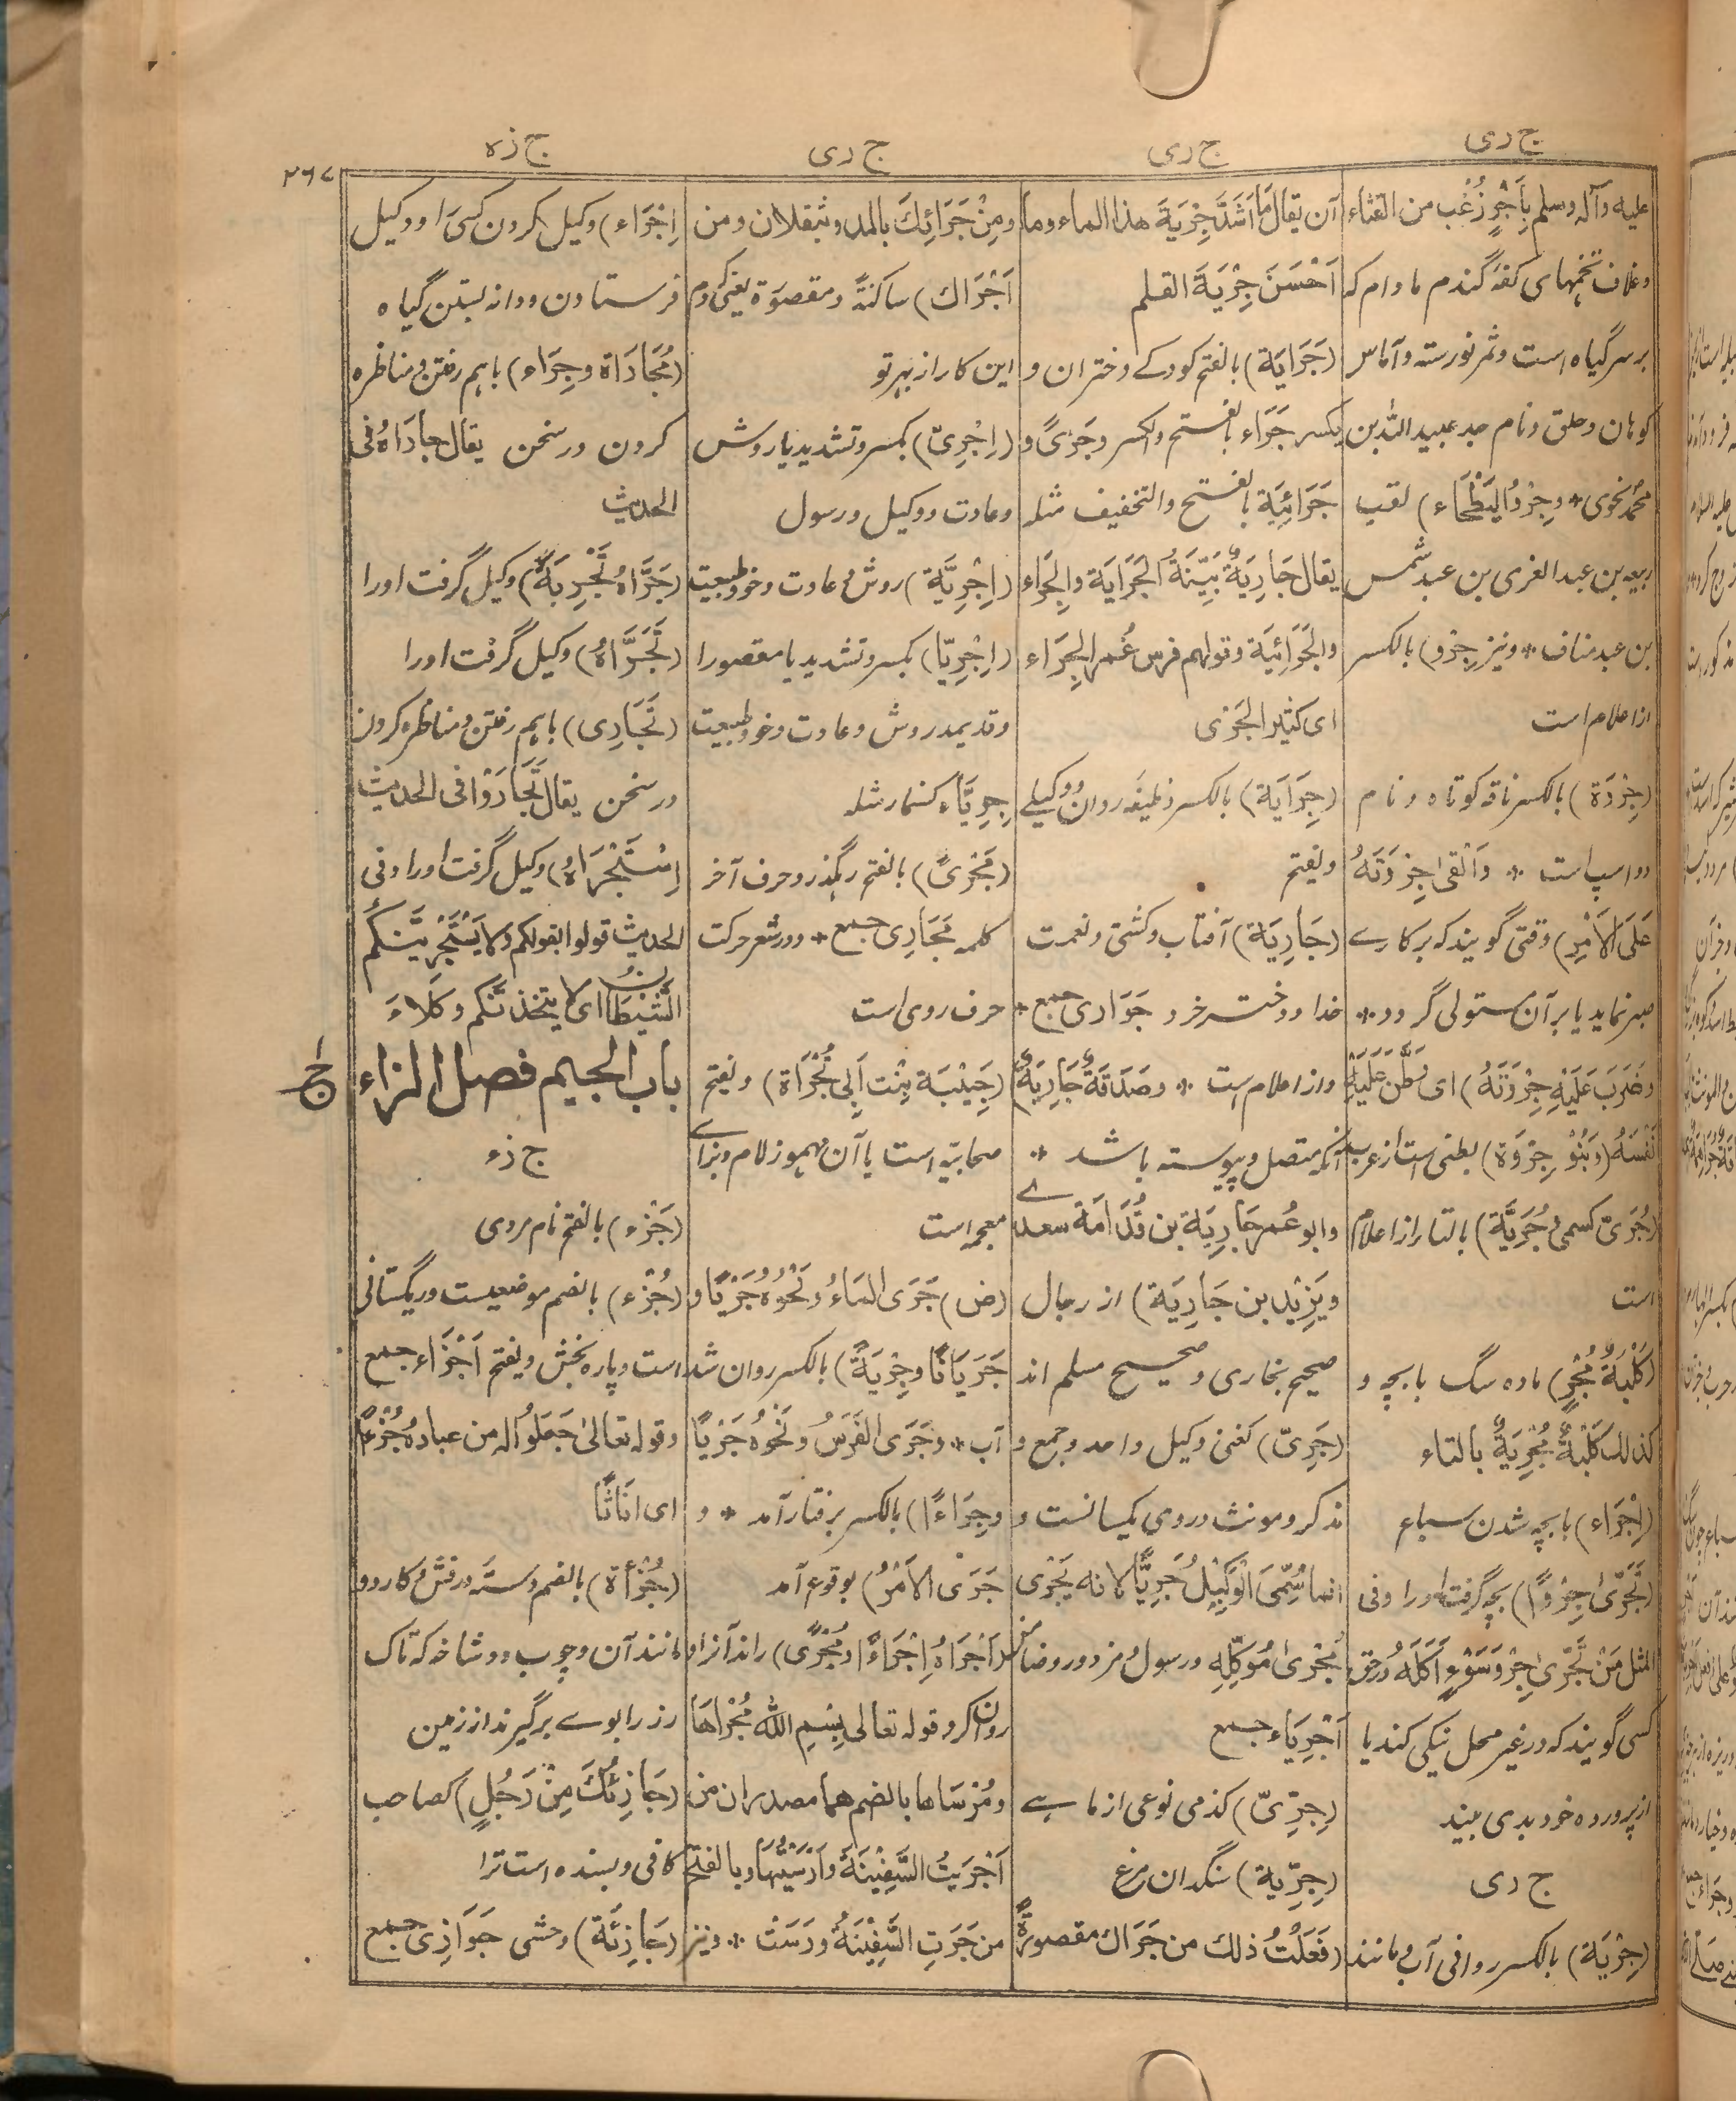 ج ری
ج ری
ج ری
ج زء
۲۶۷
علیه وآله وسلم بِاَجْرٍ زُغْب من القثاء
وغلاف تخمهای کفهٔ گندم مادام که
بر سر گیاه است وثمر نورسته وآماس
کوهان وحلق ونام جد عبید الله بن
محمد نحوی * وجِرْوُ البَطْحَاء) لقب
ربیعه بن عبد العزی بن عبد شمس
بن عبد مناف * ونیز (جِرْو) بالکسر
از اعلام است
(جِرْوَة) بالکسر ناقه کوتاه ونام
دو اسپ است * وَاَلْقٰی جِرْوَتَهُ
عَلَی الْاَمْرِ) وقتی گویند که بر کارے
صبر نماید یا بر آن مستولی گردد *
وضَرَبَ عَلَیْهِ جِرْوَتَهُ) ای وَطَّنَ عَلَیْهِ
نَفْسَهُ (وَبَنُوْ جِرْوَة) بطنی است از عرب
(جُرَیّ کسمی وجُرَیَّة) بالتاء از اعلام
است
(کَلْبَةٌ مُجْرٍ) ماده سگ با بچه و
کذلك کَلْبَةٌ مُجْرِیَةٌ بالتاء
(اِجْرَاء) با بچه شدن سباع
(تَجَرّیٰ جِرْوًا) بچه گرفت او را وفی
المثل مَنْ تَجَرّیٰ جِرْوَ سَوْءٍ اَکَلَهُ در حق
کسی گویند که در غیر محل نیکی کند یا
از پرورده خود بدی بیند
ج ری
(جِرْیَة) بالکسر روانی آب ومانند
آن یقال مَا اَشَدَّ جِرْیَةَ هذا الماء وما
اَحْسَنَ جِرْیَةَ القلم
(جَرَایَة) بالفتح کودکے دختران و
یکسر جَرَاء بالفتح والکسر وجَرًی و
جَرَائِیَة بالفتح والتخفیف مثله
یقال جَارِیَةٌ بَیِّنَةُ الجَرَایَة والجِرَاء
والجَرَائِیَة وقولهم فرس غُمر الجِرَاء
ای کثیر الجَرْی
(جِرَایَة) بالکسر وظیفه روان ووکیلے
ویفتح
(جَارِیَة) آفتاب وکشتی ونعمت
خدا ودختر خرد جَوَاری جمع *
واز اعلام است * وصَدَقَةٌ جَارِیَةٌ)
آنکه متصل وپیوسته باشد *
وابو عُمر جَارِیَة بن قُدَامَة سعدے
ویَزِیْد بن جَارِیَة) از رجال
صحیح بخاری وصحیح مسلم اند
(جَرِیّ) کغنی وکیل واحد وجمع و
مذکر ومونث در وی یکسانست و
انما سُمِّیَ الْوَکِیْلُ جَرِیًّا لانه یَجْرِی
مُجْرٰی مُوَکِّلِهِ ورسول ومزدور وضامن
اَجْرِیَاء جمع
(جِرِّیّ) کذمی نوعی از ماهیے
(جِرِّیَة) سنگدان مرغ
(فَعَلْتُ ذلك من جَرَاك مقصورةً
ومِنْ جَرَائِكَ بالمد ویثقلان ومن
اَجْرَاك) ساکنةً ومقصورة یعنی کردم
این کار از بهر تو
(اِجْرِیّ) بکسر وتشدید یا روش
وعادت ووکیل ورسول
(اِجْرِیَّة) روش وعادت وخو وطبیعت
(اِجْرِیّا) بکسر وتشدید یا مقصورا
وقدیمد روش وعادت وخو وطبیعت
جِرِیَّاء کسنمار مثله
(مَجْرًی) بالفتح رهگذر وحرف آخر
کلمه مَجَارِی جمع * ودر شعر حرکت
حرف روی است
(جَیْبَة بِنْت اَبِی تُجْرَاة) ویفتح
صحابیّه است یا آن مهموز لام وبزاے
معجمه است
(ض) جَرَی المَاءُ وَنَحْوُهُ جَرْیًا و
جَرَیَانًا وجِرْیَةً) بالکسر روان شد
آب * وجَرَی الفَرَسُ وَنَحْوُهُ جَرْیًا
وجِرَاءً) بالکسر برفتار آمد * و
جَرَی الاَمْرُ) بوقوع آمد
(اَجْرَاهُ اِجْرَاءً ومُجْرًی) راند آنرا و
روان کرد وقوله تعالی بِسْمِ اللّٰه مُجْرَاهَا
ومُرْسَاها بالضم هما مصدران من
اَجْرَیْتُ السَّفِیْنَةَ وَاَرْسَیْتُهَا وبالفتح
من جَرَتِ السَّفِیْنَةُ ورَسَتْ * ونیز
اِجْرَاء) وکیل کردن کسی را ووکیل
فرستادن ودانه بستن گیاه
(مُجَارَاة وجِرَاء) باهم رفتن ومناظره
کردن در سخن یقال جارَاهُ فی
الحدیث
(جَرَّاهُ تَجْرِیَةً) وکیل گرفت او را
(تَجَرَّاهُ) وکیل گرفت او را
(تَجَارِی) باهم رفتن ومناظره کردن
در سخن یقال تَجَارَوْا فی الحدیث
(اِسْتَجْرَاهُ) وکیل گرفت او را وفی
الحدیث قولوا بقولکم ولا یَسْتَجْرِیَنَّکُمُ
الشَّیْطَانُ ای لا یتخذنّکم وکلاءَ
باب الجیم فصل الزاء
ج ز
ج زء
(جَزْء) بالفتح نام مردی
(جُزْء) بالضم موضعیست وریگستانی
است وپاره بخش ویفتح اَجْزَاء جمع
وقوله تعالیٰ جَعَلُوْا له من عبادهٖ جُزْءًا
ای اناثًا
(جُزْأَة) بالضم دستهٔ درفش وکارد و
مانند آن وچوب دوشاخه که تاک
رز را بوے برگیرند از زمین
(جَازِئُكَ مِنْ رَجُلٍ) کصاحب
کافی وبسنده است ترا
(جَازِئَة) وحشی جَوَازِی جمع